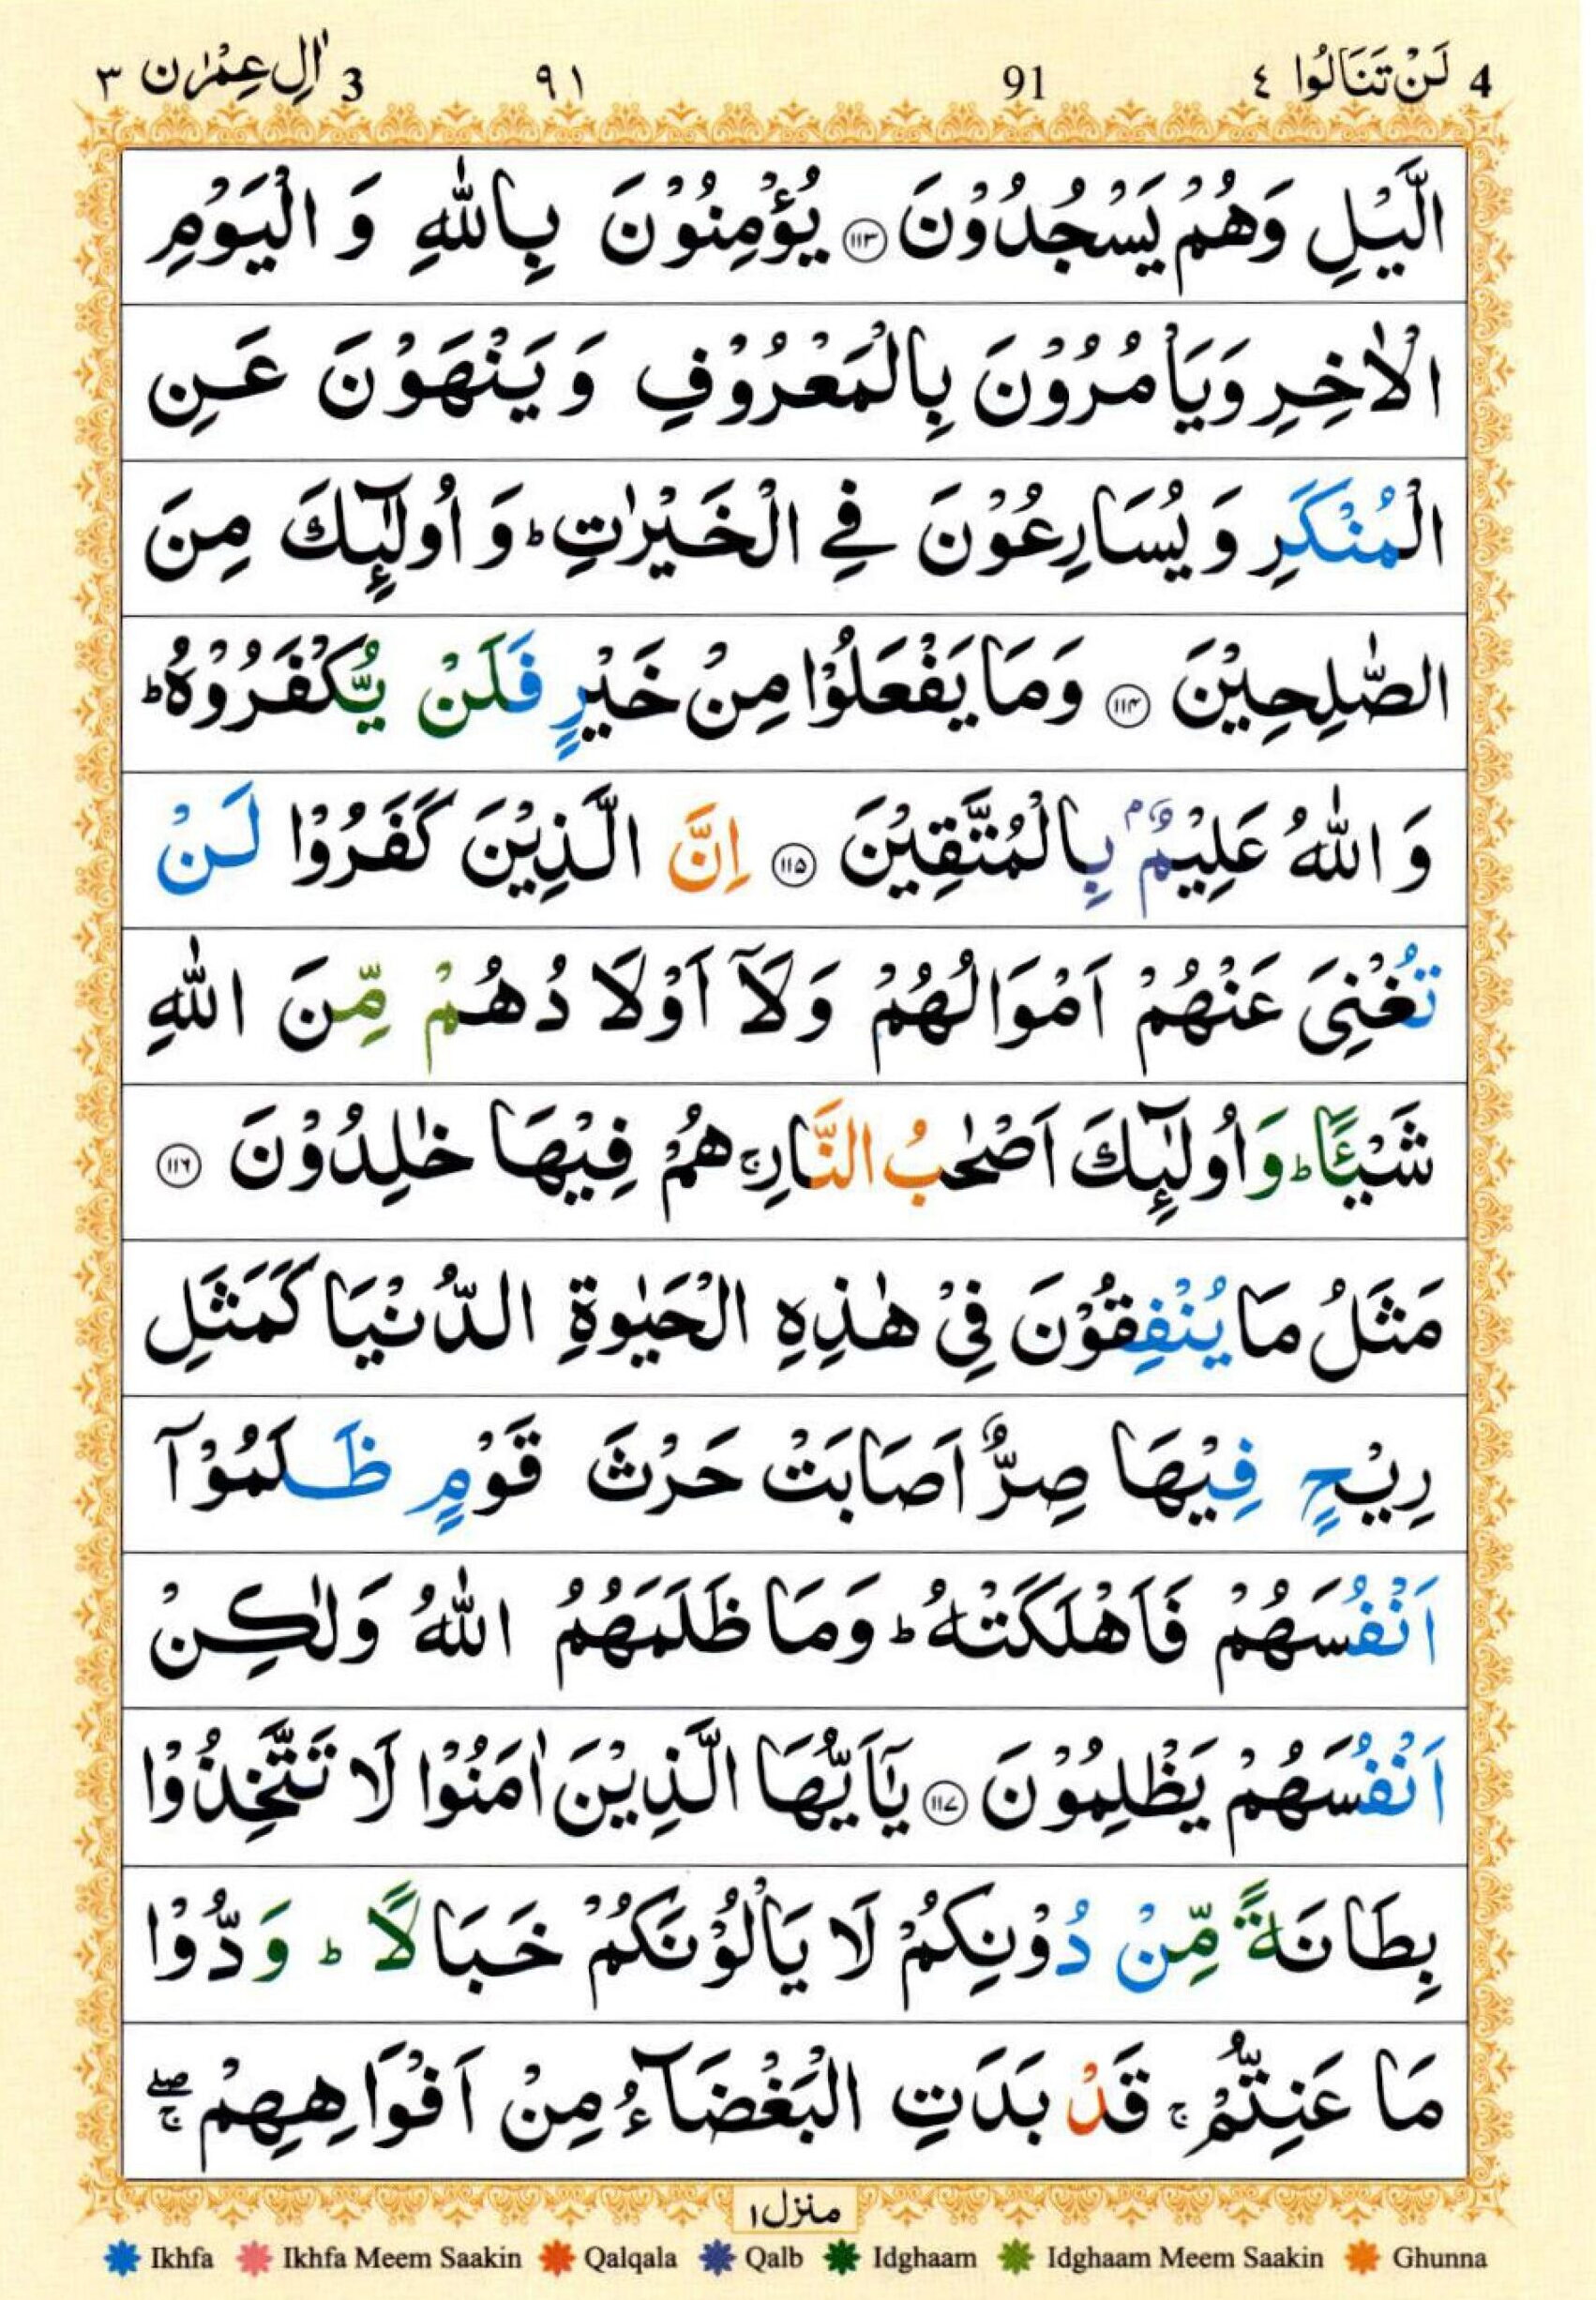 4 لَنْ تَنَالُوا ٤ 91 ٩١ 3 اٰلِ عِمْرٰن ٣
الَّيْلِ وَهُمْ يَسْجُدُوْنَ ۝١١٣ يُؤْمِنُوْنَ بِاللّٰهِ وَ الْيَوْمِ
الْاٰخِرِ وَيَاْمُرُوْنَ بِالْمَعْرُوْفِ وَيَنْهَوْنَ عَنِ
الْمُنْكَرِ وَ يُسَارِعُوْنَ فِے الْخَيْرٰتِ ؕ وَ اُولٰٓئِكَ مِنَ
الصّٰلِحِيْنَ ۝١١٤ وَمَا يَفْعَلُوْا مِنْ خَيْرٍ فَلَنْ يُّكْفَرُوْهُ ؕ
وَ اللّٰهُ عَلِيْمٌۢ بِالْمُتَّقِيْنَ ۝١١٥ اِنَّ الَّذِيْنَ كَفَرُوْا لَنْ
تُغْنِىَ عَنْهُمْ اَمْوَالُهُمْ وَلَآ اَوْلَادُهُمْ مِّنَ اللّٰهِ
شَيْـًٔا ؕ وَ اُولٰٓئِكَ اَصْحٰبُ النَّارِ ۚ هُمْ فِيْهَا خٰلِدُوْنَ ۝١١٦
مَثَلُ مَا يُنْفِقُوْنَ فِىْ هٰذِهِ الْحَيٰوةِ الدُّنْيَا كَمَثَلِ
رِيْحٍ فِيْهَا صِرٌّ اَصَابَتْ حَرْثَ قَوْمٍ ظَلَمُوْۤا
اَنْفُسَهُمْ فَاَهْلَكَتْهُ ؕ وَمَا ظَلَمَهُمُ اللّٰهُ وَلٰكِنْ
اَنْفُسَهُمْ يَظْلِمُوْنَ ۝١١٧ يٰٓاَيُّهَا الَّذِيْنَ اٰمَنُوْا لَا تَتَّخِذُوْا
بِطَانَةً مِّنْ دُوْنِكُمْ لَا يَاْلُوْنَكُمْ خَبَالًا ؕ وَدُّوْا
مَا عَنِتُّمْ ۚ قَدْ بَدَتِ الْبَغْضَآءُ مِنْ اَفْوَاهِهِمْ ۖۚ
منزل ١
Ikhfa Ikhfa Meem Saakin Qalqala Qalb Idghaam Idghaam Meem Saakin Ghunna